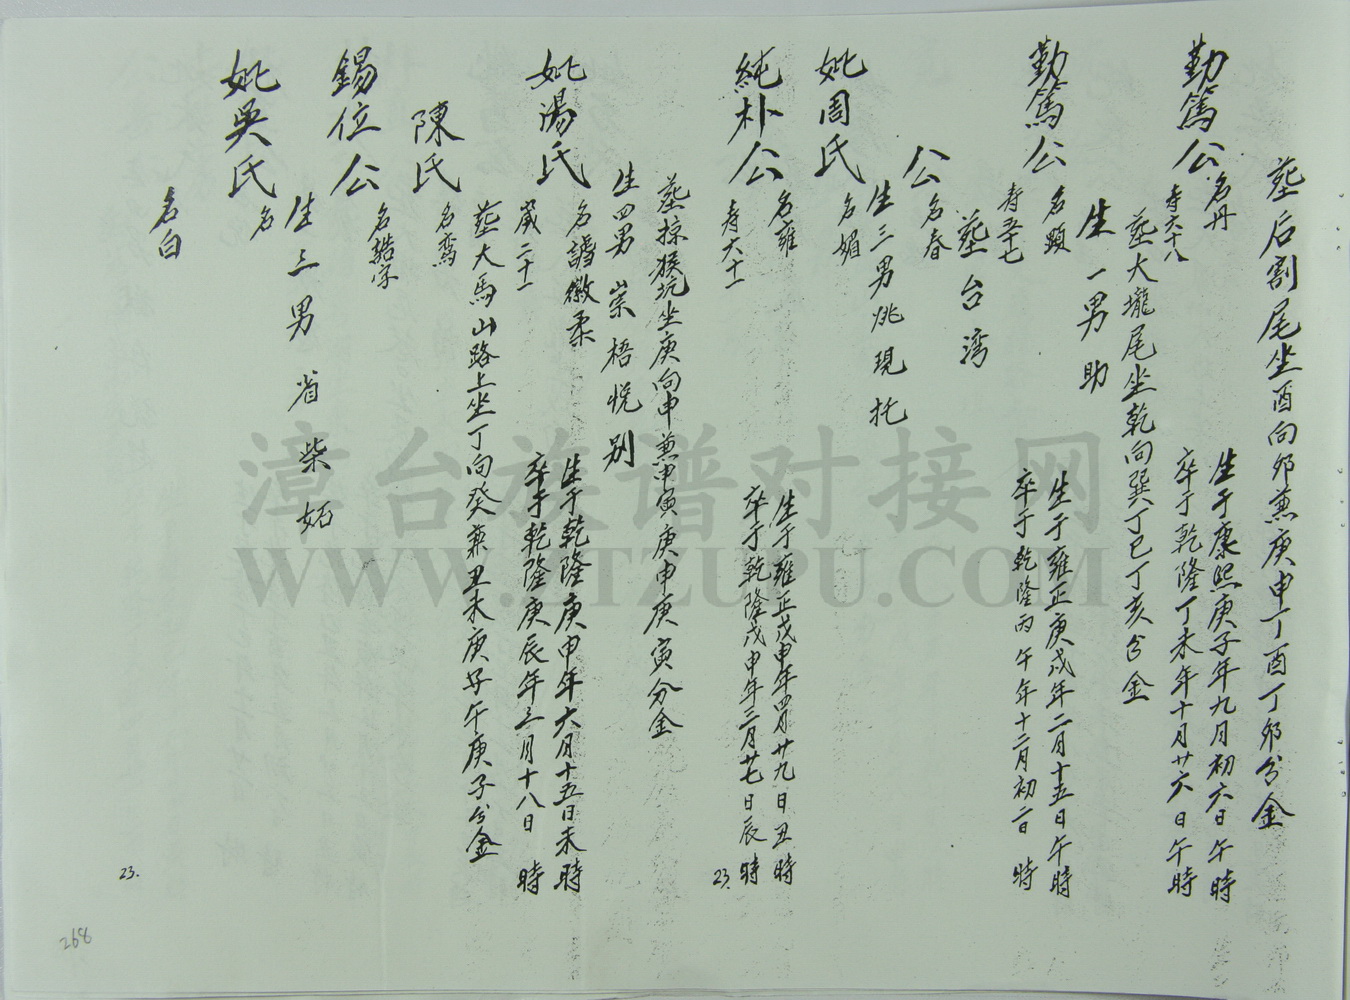 塟后割尾坐酉向卯兼庚申丁酉丁卯分金
勤篤公 名丹 生于康熙庚子年九月初六日午時
寿六十八 卒于乾隆丁未年十月廿六日午時
塟大壠尾坐乾向巽丁巳丁亥分金
生一男助
勤篤公 名顕 生于雍正庚戍年二月十五日午時
寿五十七 卒于乾隆丙午年十二月初二日 時
塟台湾
公 名春
生三男兆現托
妣周氏 名媚
純朴公 名雍 生于雍正戊申年四月廿九日丑時
寿六十一 卒于乾隆戊申年三月廿七日辰時
23.
塟掠猴坑坐庚向申兼申寅庚申庚寅分金
生四男崇梧悦别
妣湯氏 名 徽柔 生于乾隆庚申年六月十五日未時
歲二十一 卒于乾隆庚辰年三月十八日 時
塟大馬山路上坐丁向癸兼丑未庚子午庚子分金
陳氏 名鸾
錫位公 名 字
生三男省柴妬
妣吳氏 名
名白
23.
268
漳台族谱对接网
WWW.ZTZUPU.COM